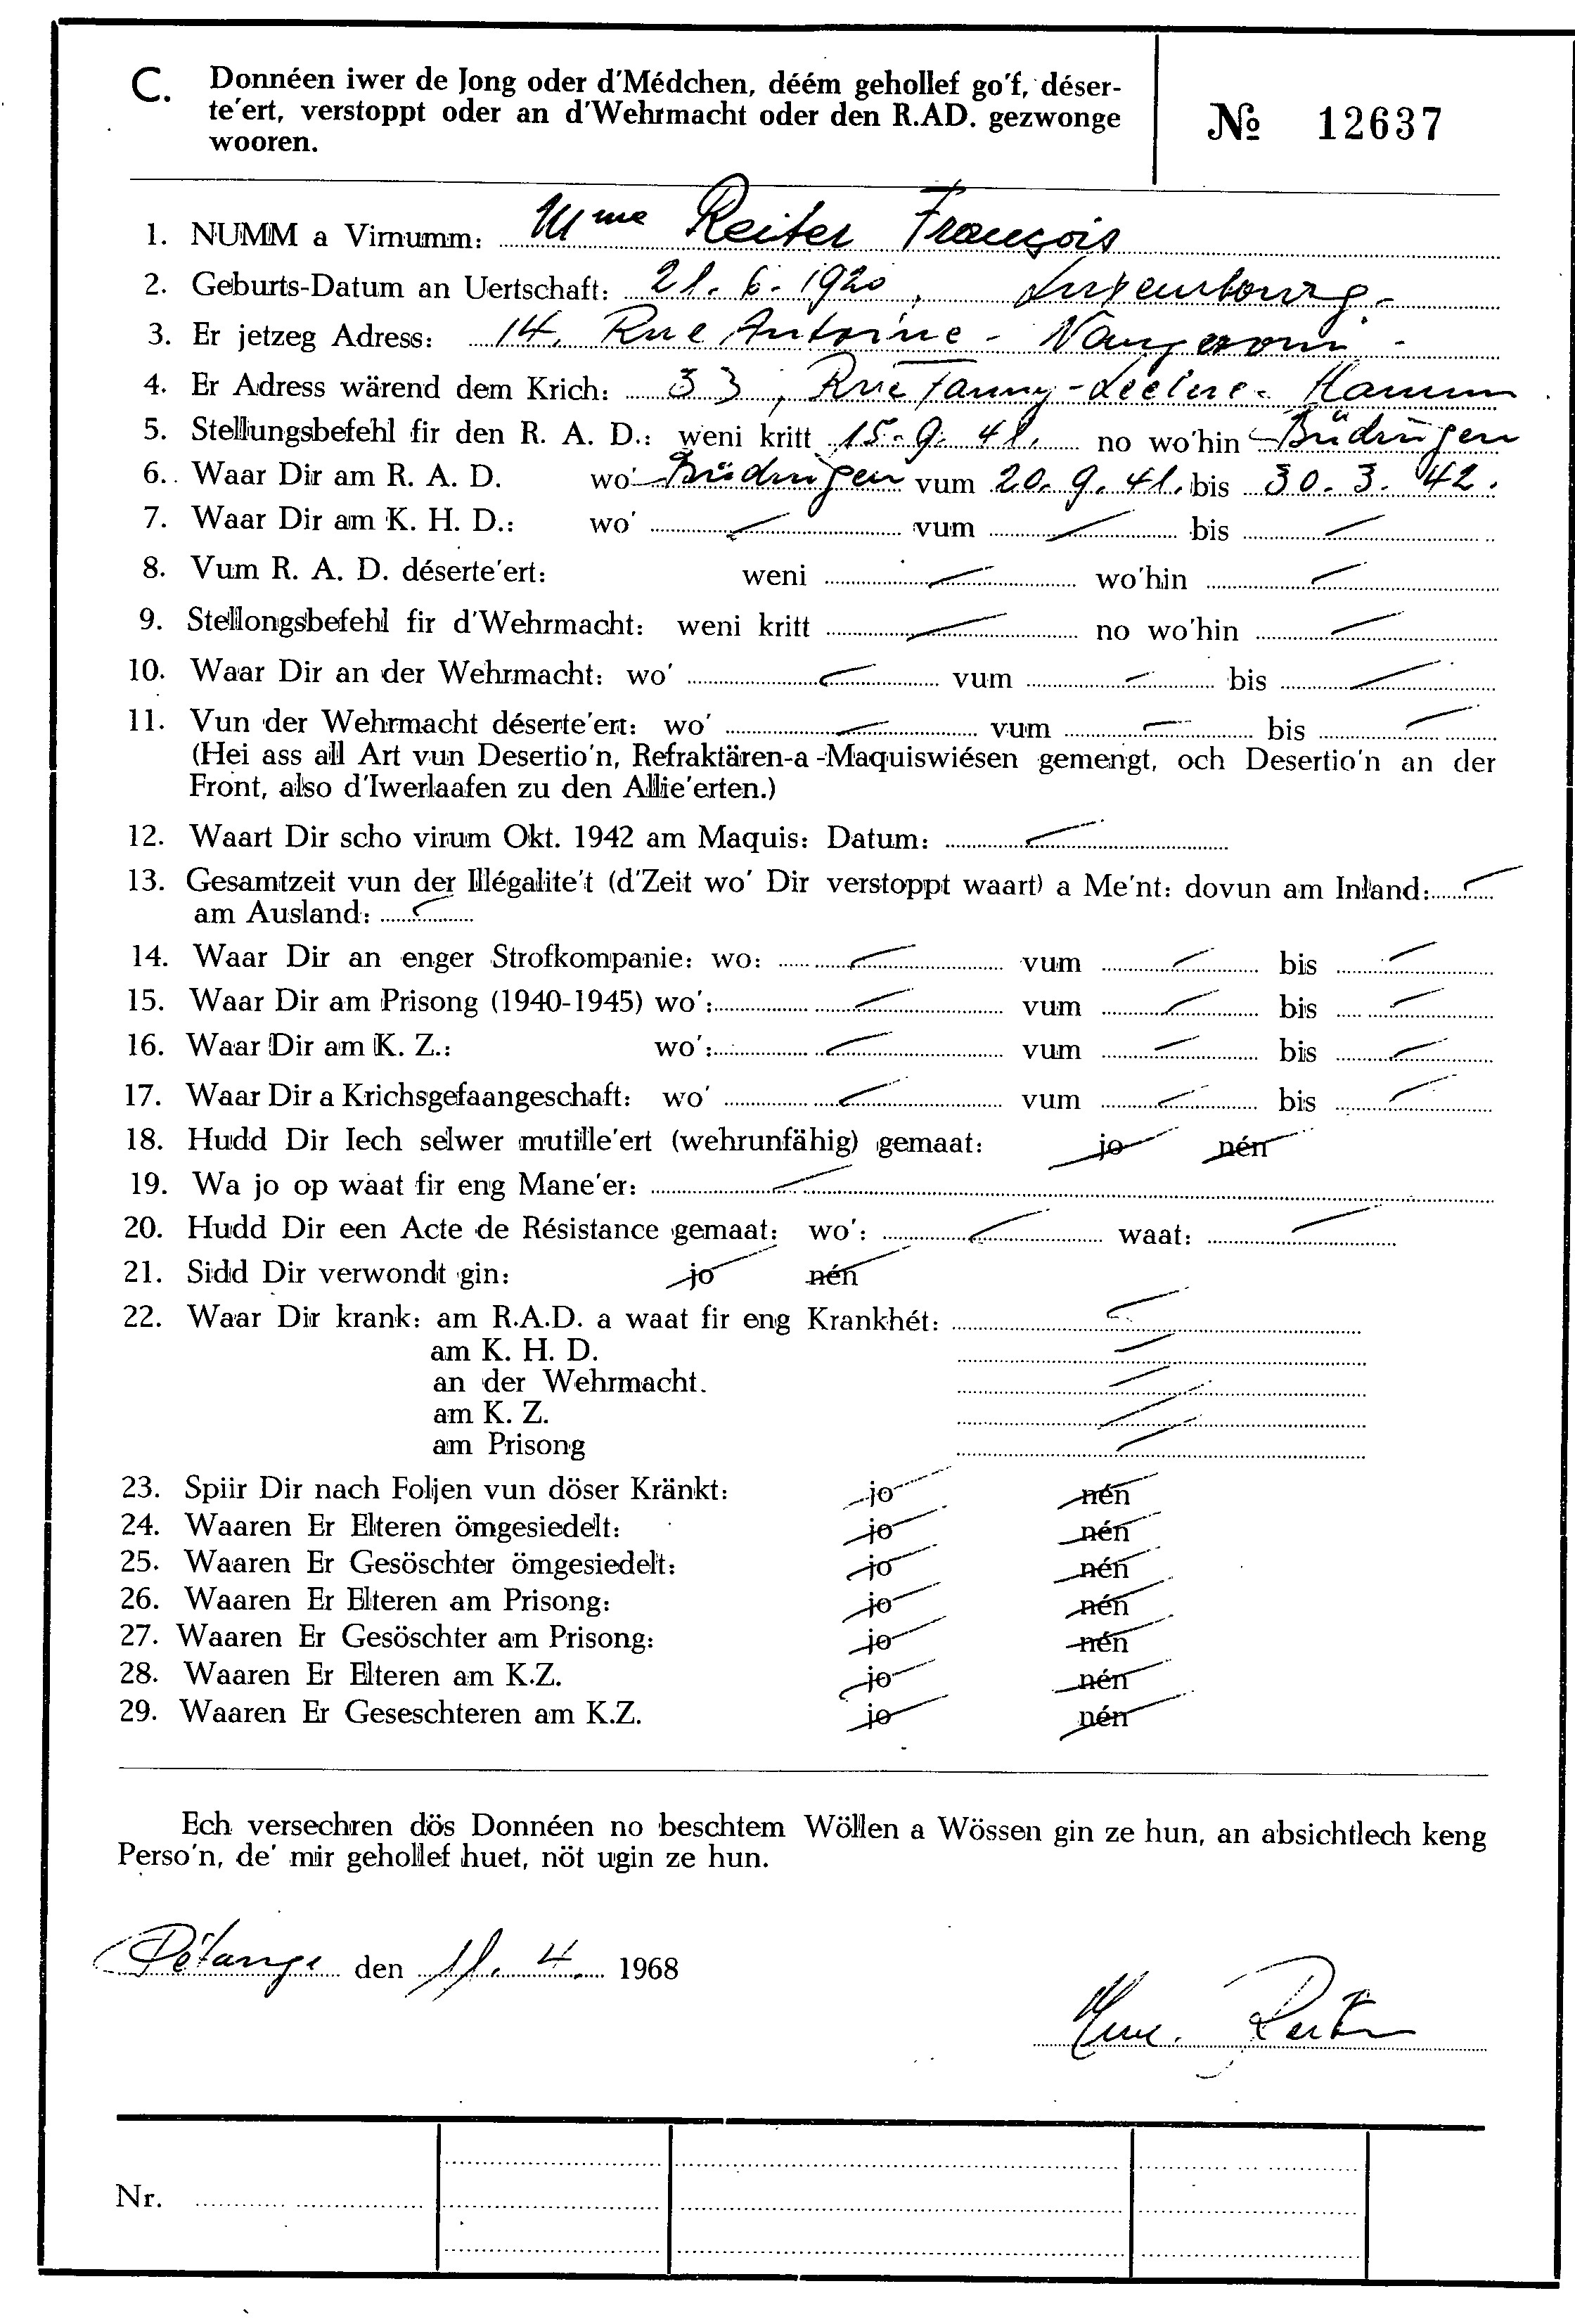 C. Donnéen iwer de Jong oder d'Médchen, déém gehollef go'f, déser-
te'ert, verstoppt oder an d'Wehrmacht oder den R.AD. gezwonge
wooren.
№ 12637
1. NUMM a Virnumm: Mme Reiter François
2. Geburts-Datum an Uertschaft: 21. 6. 1920, Luxembourg.
3. Er jetzeg Adress: 14, Rue Antoine -
4. Er Adress wärend dem Krich: 33, Rue Fanny-Leclerc - Hamm
5. Stellungsbefehl fir den R. A. D.: weni kritt 15. 9. 41. no wo'hin Büdingen
6. Waar Dir am R. A. D. wo' Büdingen vum 20. 9. 41. bis 30. 3. 42.
7. Waar Dir am K. H. D.: wo' vum bis
8. Vum R. A. D. déserte'ert: weni wo'hin
9. Stellongsbefehl fir d'Wehrmacht: weni kritt no wo'hin
10. Waar Dir an der Wehrmacht: wo' vum bis
11. Vun der Wehrmacht déserte'ert: wo' vum bis
(Hei ass all Art vun Desertio'n, Refraktären-a -Maquiswiésen gemengt, och Desertio'n an der
Front, also d'Iwerlaafen zu den Allie'erten.)
12. Waart Dir scho virum Okt. 1942 am Maquis: Datum:
13. Gesamtzeit vun der Illégalite't (d'Zeit wo' Dir verstoppt waart) a Me'nt: dovun am Inland:
am Ausland:
14. Waar Dir an enger Strofkompanie: wo: vum bis
15. Waar Dir am Prisong (1940-1945) wo': vum bis
16. Waar Dir am K. Z.: wo': vum bis
17. Waar Dir a Krichsgefaangeschaft: wo' vum bis
18. Hudd Dir Iech selwer mutille'ert (wehrunfähig) gemaat: jo nén
19. Wa jo op waat fir eng Mane'er:
20. Hudd Dir een Acte de Résistance gemaat: wo': waat:
21. Sidd Dir verwondt gin: jo nén
22. Waar Dir krank: am R.A.D. a waat fir eng Krankhét:
am K. H. D.
an der Wehrmacht.
am K. Z.
am Prisong
23. Spiir Dir nach Foljen vun döser Kränkt: jo nén
24. Waaren Er Elteren ömgesiedelt: jo nén
25. Waaren Er Gesöschter ömgesiedelt: jo nén
26. Waaren Er Elteren am Prisong: jo nén
27. Waaren Er Gesöschter am Prisong: jo nén
28. Waaren Er Elteren am K.Z. jo nén
29. Waaren Er Geseschteren am K.Z. jo nén
Ech versechren dös Donnéen no beschtem Wöllen a Wössen gin ze hun, an absichtlech keng
Perso'n, de' mir gehollef huet, nöt ugin ze hun.
Pétange den 11. 4. 1968
Mme. Reiter
Nr.